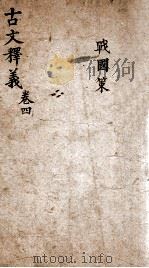 古文釋義 卷四
戰國策
mtoou.info